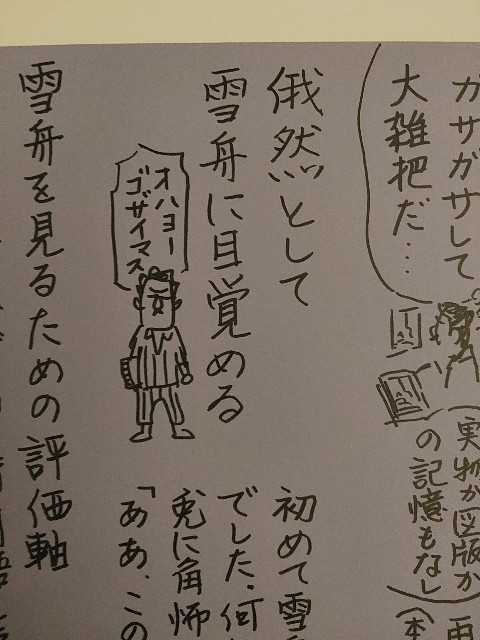 ガサガサして
大雑把だ…
(実物か図版か
の記憶もなし)
俄然として
雪舟に目覚める
オハヨー
ゴザイマス
初めて雪
でした.何
兎に角怖
「ああ、この
雪舟を見るための評価軸